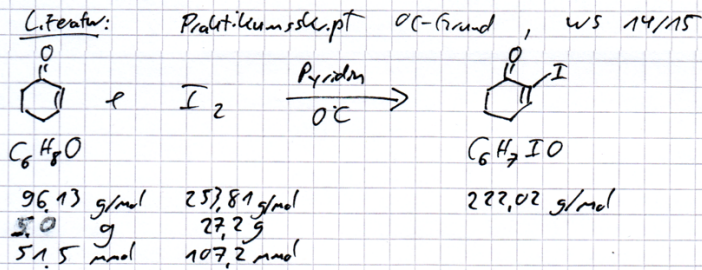 Literatur: Praktikumsskript OC-Grund, WS 14/15
O O
I
+ I2 Pyridin
0°C
C6H8O C6H7IO
96,13 g/mol 253,81 g/mol 222,02 g/mol
5,0 g 27,2 g
51,5 mmol 107,2 mmol